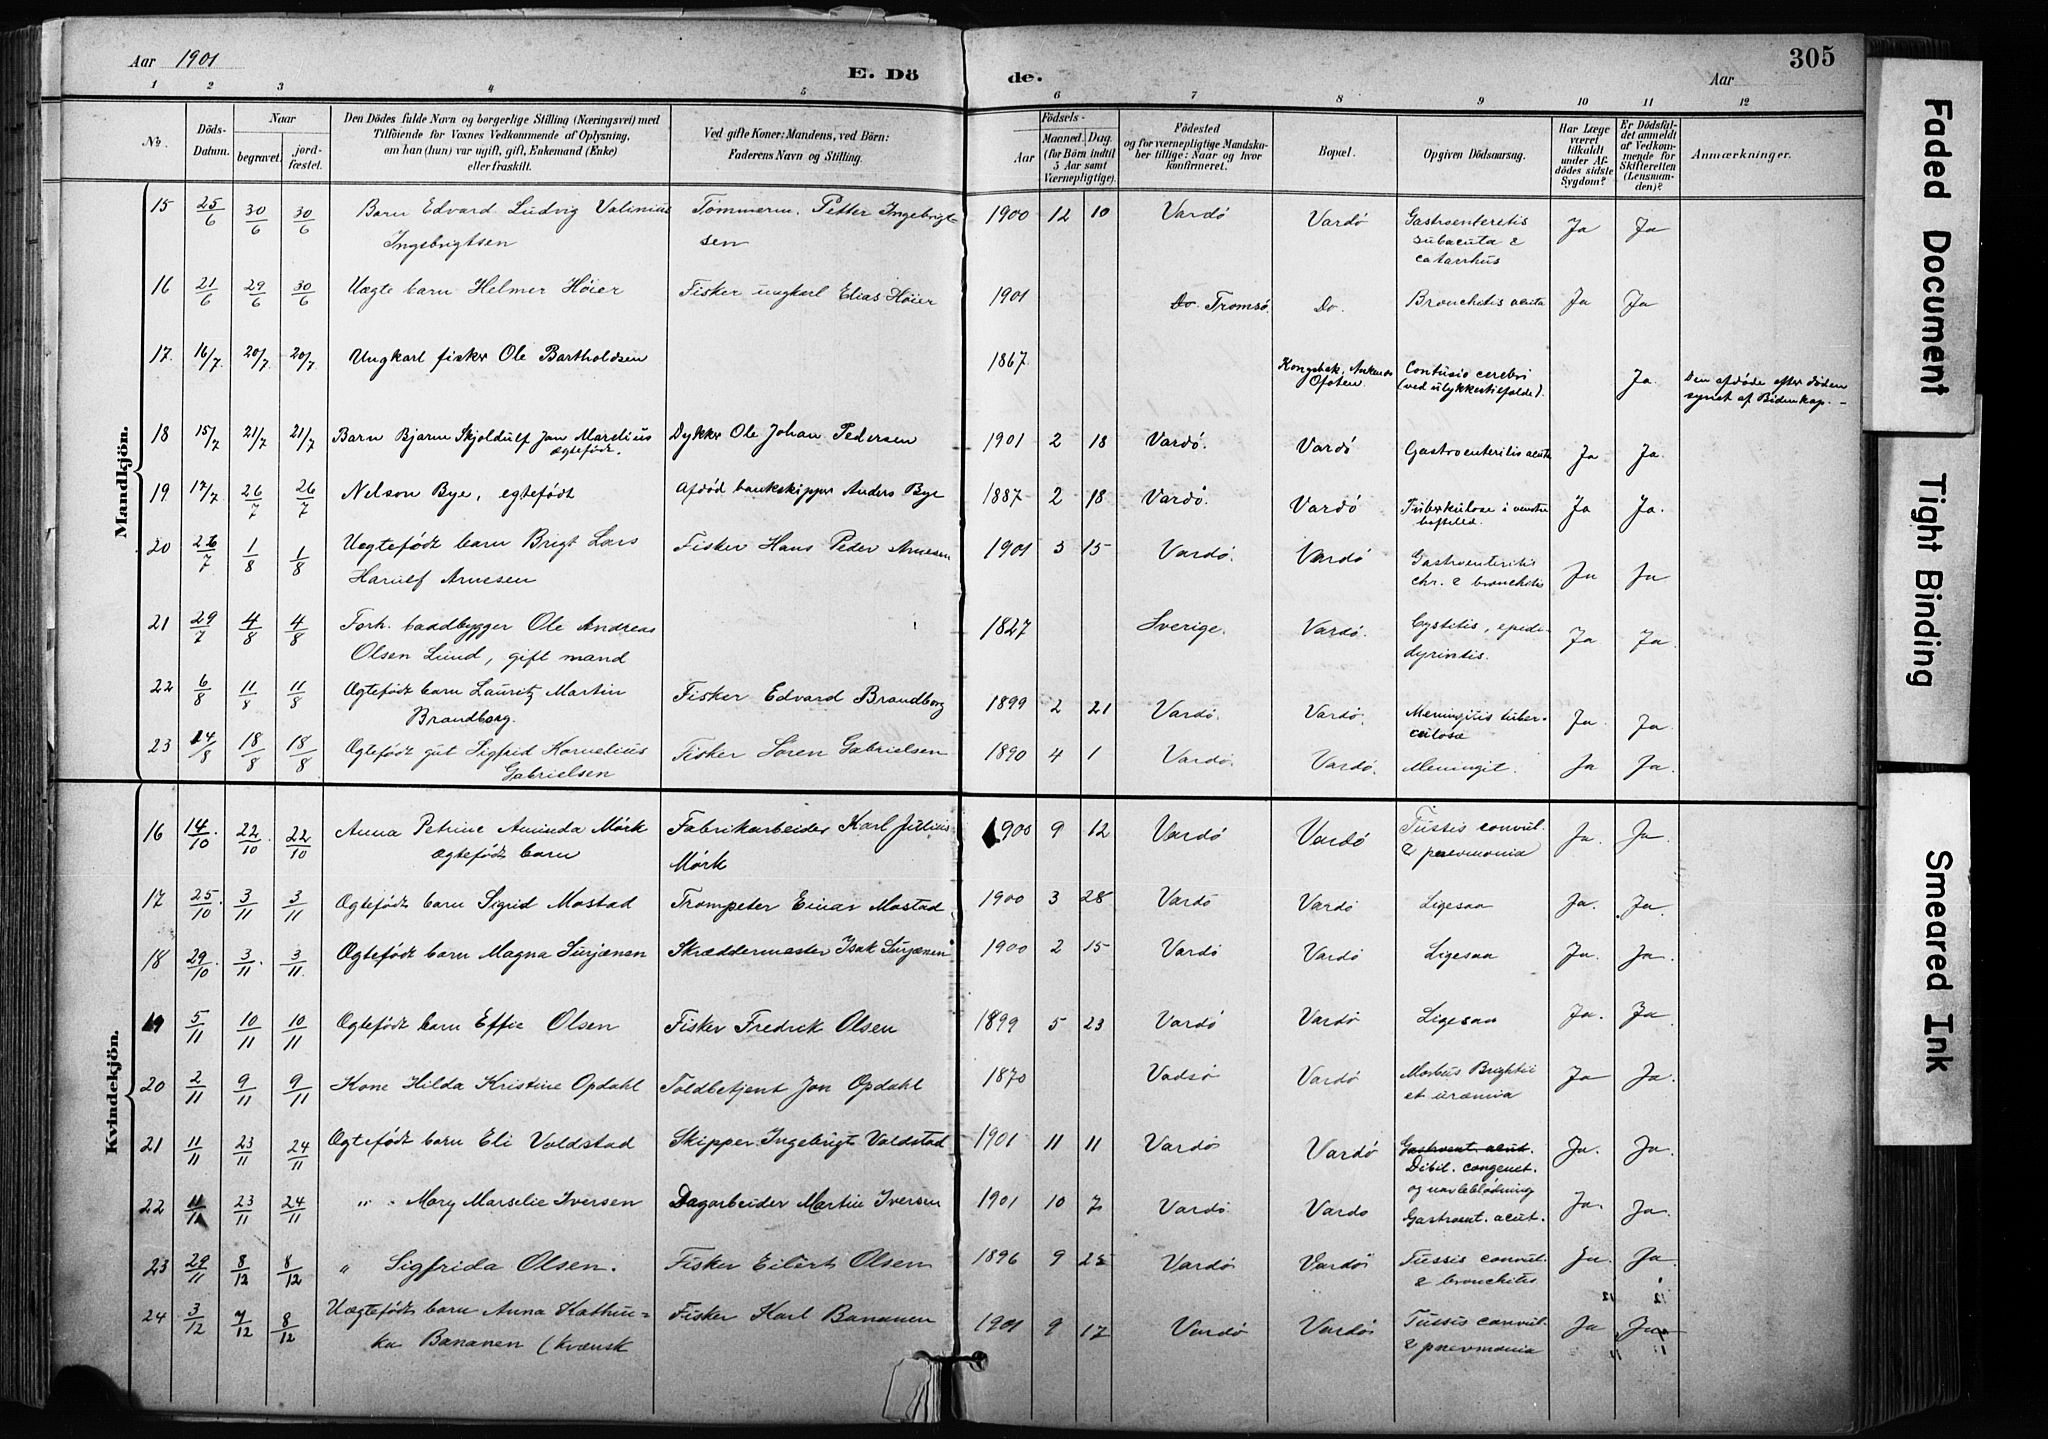 Aar 1901
E. Dö
de.
Aar
305
1 2 3 4 5 6 7 8 9 10 11 12
No.
Döds-Datum.
Naar
begravet.
jordfæstet.
Den Dödes fulde Navn og borgerlige Stilling (Næringsvei) med
Tilföiende for Voxnes Vedkommende af Oplysning,
om han (hun) var ugift, gift, Enkemand (Enke)
eller fraskilt.
Ved gifte Koner: Mandens, ved Börn:
Faderens Navn og Stilling.
Födsels-
Aar
Maaned. Dag.
(for Börn indtil
5 Aar samt
Værnepligtige).
Födested
og for værnepligtige Mandska-
ber tillige: Naar og hvor
konfirmeret.
Bopæl.
Opgiven Dödsaarsag.
Har Læge
været
tilkaldt
under Af-
dödes sidste
Sygdom?
Er Dödsfal-
det anmeldt
af Vedkom-
mende for
Skifteretten
(Lensman-
den)?
Anmærkninger.
Mandkjön.
15 25/6 30/6 30/6 Barn Edvard Ludvig Valinius Tømmerm. Petter Ingebrigt- 1900 12 10 Vardö Vardö Gastroenteretis Ja Ja
Ingebrigtsen sen subacuta &
catarrhus
16 21/6 29/6 30/6 Uægte barn Helmer Høier Fisker ungkarl Elias Høier 1901 Do. Tromsø. Do. Bronchitis acuta Ja Ja
17. 16/7 20/7 20/7 Ungkarl fisker Ole Bartholdsen 1867 Contusio cerebri Ja. Den afdøde efter døden
Ofoten (ved ulykkestilfælde). synet af
18 15/7 21/7 21/7 Barn Bjarn Skjoldulf Jan Marelius Dykker Ole Johan Pedersen 1901 2 18 Vardö. Vardö Gastroenteritis acuta Ja Ja.
ægtefødt.
19 17/7 26/7 26/7 Nelson Bye, egtefødt Afdød bankskipper Anders Bye 1887 2 18 Vardö. Vardö Tuberkulose i venstre Ja Ja.
hofteled.
20 26/7 1/8 1/8 Uegtefødt barn Brigt Lars Fisker Hans Peder Arnesen 1901 5 15 Vardö. Vardö Gastroenteritis Ja Ja
Harulf Arnesen chr. & bronchitis
21 29/7 4/8 4/8 Forh. baadbygger Ole Andreas 1827 Sverige. Vardö. Cystitis, epidi- Ja Ja.
Olsen Lund, gift mand dyrintis.
22 6/8 11/8 11/8 Ægtefødt barn Lauritz Martin Fisker Edvard Brandborg 1899 2 21 Vardö. Vardö. Meningitis tuber- Ja. Ja.
Brandborg. culosa
23 14/8 18/8 18/8 Ægtefødt gut Sigfrid Kornelius Fisker Søren Gabrielsen 1890 4 1 Vardö. Vardö. Meningit. Ja Ja.
Gabrielsen
Kvindekjön.
16 14/10 22/10 22/10 Anna Petrine Aminda Mørk Fabrikarbeider Karl Julius 1900 9 12 Vardö Vardö Tussis convul. Ja. Ja.
Ægtefødt barn Mørk & pnevmonia
17 25/10 3/11 3/11 Ægtefødt barn Sigrid Mostad Trompeter Einar Mostad 1900 3 28 Vardö Vardö Ligesaa Ja. Ja.
18 29/10 3/11 3/11 Ægtefødt barn Magna Surjænen Skræddermester Isak Surjænen 1900 2 15 Vardö Vardö Ligesaa Ja. Ja.
19 5/11 10/11 10/11 Ægtefødt barn Effie Olsen Fisker Fredrik Olsen 1899 5 23 Vardö Vardö Ligesaa Ja. Ja.
20 2/11 9/11 9/11 Kone Hilda Kristine Opdahl Toldbetjent Jon Opdahl 1870 Vadsö Vardö Morbus Brightii Ja Ja.
et uræmia
21 11/11 23/11 24/11 Ægtefødt barn Eli Voldstad Skipper Ingebrigt Voldstad 1901 11 11 Vardö Vardö Gastroent. acut. Ja. Ja.
Dibil. congenet.
og navleblødning
22 11/11 23/11 24/11 " Mary Marselie Iversen Dagarbeider Martin Iversen 1901 10 7 Vardö. Vardö Gastroent. acut. Ja. Ja.
23 29/11 8/12 8/12 " Sigfrida Olsen. Fisker Eilert Olsen 1896 9 25 Vardö Vardö Tussis convul. Ja. Ja.
& bronchitis
24 3/12 7/12 8/12 Uægtefødt barn Anna Kathin- Fisker Karl Bananen 1901 9 17 Vardö Vardö Tussis convul. Ja Ja
ka Bananen (kvænsk & pnevmonia
Faded Document
Tight Binding
Smeared Ink